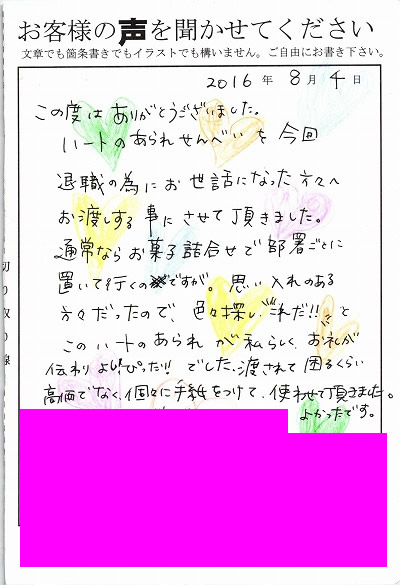 お客様の声を聞かせてください
文章でも箇条書きでもイラストでも構いません。ご自由にお書き下さい。
2016年 8月 4日
この度は ありがとうございました。
ハートの あられ せんべい を 今回
退職の為に お世話になった 方々へ
お渡しする 事に させて 頂きました。
通常なら お菓子詰合せで 部署ごとに
置いて行くのですが。思い入れのある
方々だったので、色々探し"これだ!!"と
この ハートの あられ が 私らしく、お礼が
伝わり よい!ぴった!! でした。渡されて 困るくらい
高価でなく、個々に 手紙をつけて、使わせて頂きました。
よかったです。
切り取り線